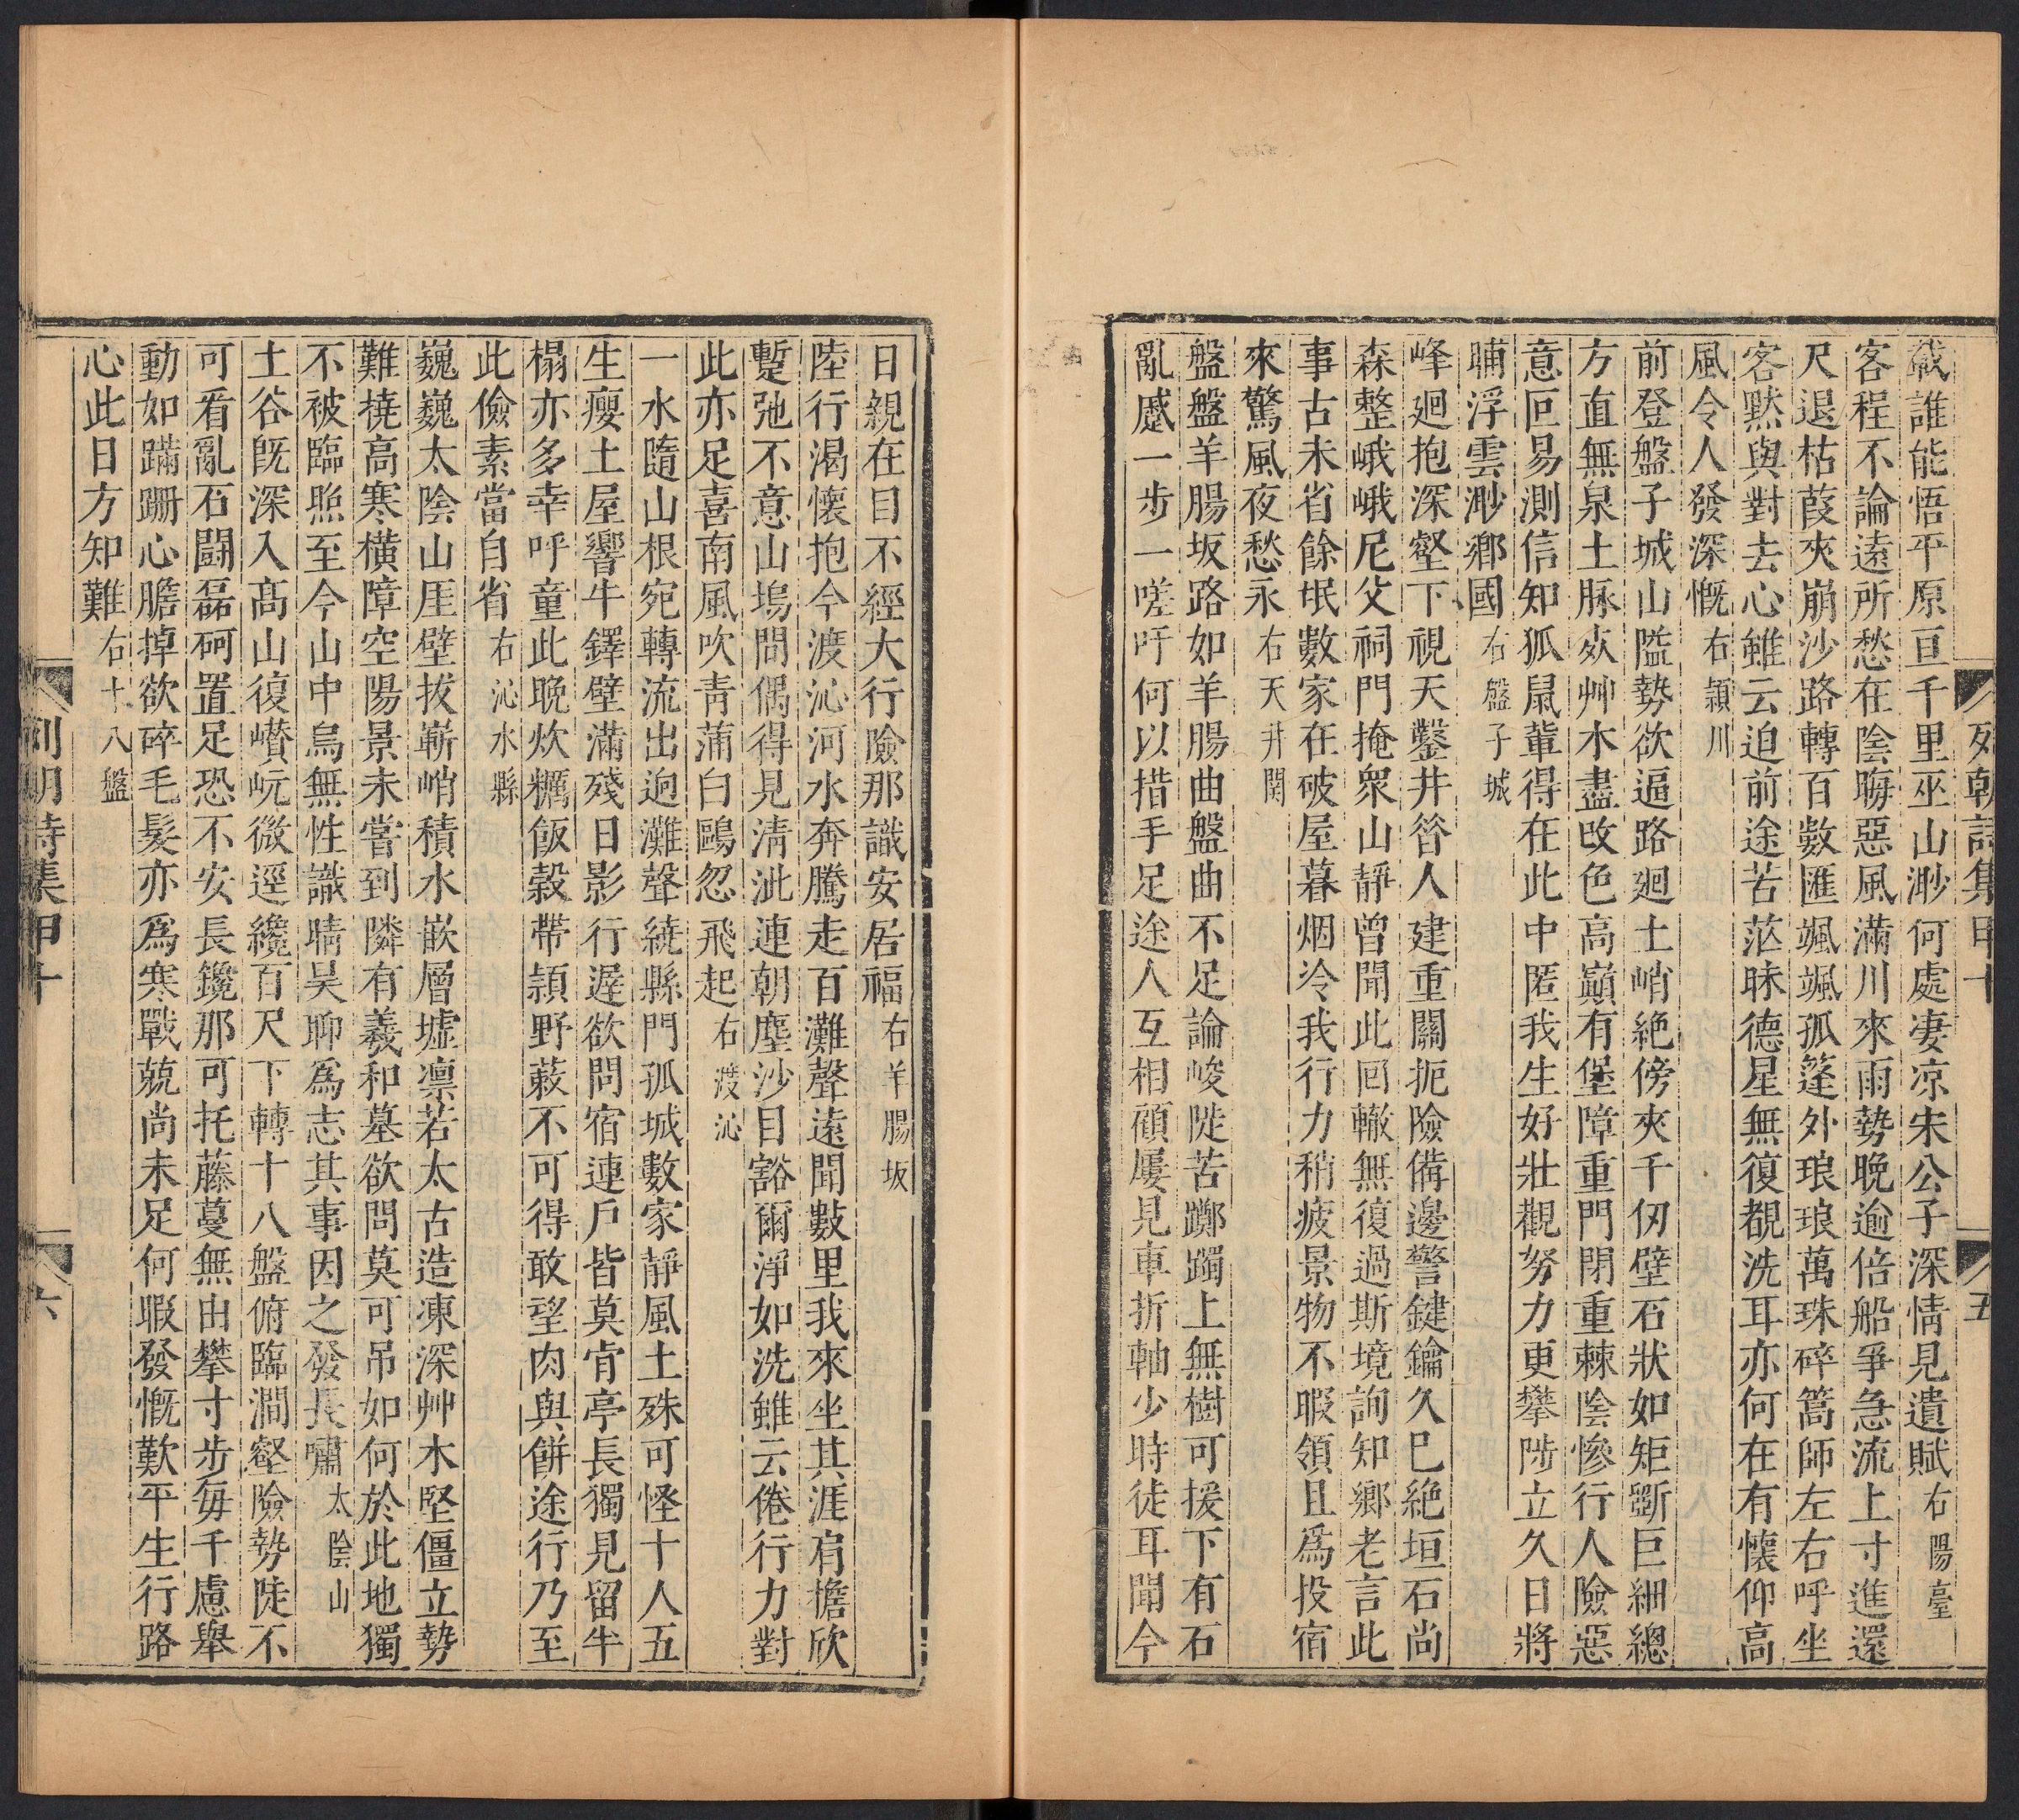 列朝詩集甲十
五
戢誰能悟平原亘千里巫山渺何處凄凉宋公子深情見遺賦右陽臺
客程不論遠所愁在陰晦惡風滿川來雨勢晚逾倍船爭急流上寸進還
尺退枯葭夾崩沙路轉百數匯颯颯孤篷外琅琅萬珠碎篙師左右呼坐
客黙與對去心雖云迫前途苦茫昧德星無復覩洗耳亦何在有懷仰高
風令人發深慨右潁川
前登盤子城山隘勢欲逼路廻土峭絶傍夾千仞壁石狀如矩斲巨細總
方直無泉土脉焱艸木盡改色高巔有堡障重門閉重棘陰慘行人險惡
意叵易測信知狐鼠軰得在此中匿我生好壯觀努力更攀陟立久日將
晡浮雲渺鄉國右盤子城
峰廻抱深壑下視天鑿井昝人建重關扼險備邊警鍵鑰久已絶垣石尚
森整峨峨尼父祠門掩衆山靜曾聞此回轍無復過斯境詢知鄉老言此
事古未省餘氓數家在破屋暮烟冷我行力稍疲景物不暇領且爲投宿
來驚風夜愁永右天井関
盤盤羊腸坂路如羊腸曲盤曲不足論峻陡苦躑躅上無樹可援下有石
亂蹙一步一嗟吁何以措手足途人互相顧屢見車折軸少時徒耳聞今
日親在目不經大行險那識安居福右羊腸坂
陸行渴懷抱今渡沁河水奔騰走百灘聲遠聞數里我來坐其涯肩擔欣
蹔弛不意山塢間偶得見淸泚連朝塵沙目豁爾淨如洗雖云倦行力對
此亦足喜南風吹靑蒲白鷗忽飛起右渡沁
一水隨山根宛轉流出迥灘聲繞縣門孤城數家靜風土殊可怪十人五
生癭土屋響牛鐸壁滿殘日影行遲欲問宿連戶皆莫肯亭長獨見留牛
榻亦多幸呼童此晚炊糲飯穀帶頴野蔌不可得敢望肉與餅途行乃至
此儉素當自省右沁水縣
巍巍太陰山厓壁拔嶄峭積水嵌層墟凛若太古造凍深艸木堅僵立勢
難撓高寒橫障空陽景未嘗到隣有羲和墓欲問莫可吊如何於此地獨
不被臨煦至今山中烏無性識晴昊聊爲志其事因之發長嘯太陰山
土谷旣深入高山復巑岏微逕纔百尺下轉十八盤俯臨澗壑險勢陡不
可看亂石鬬磊砢置足恐不安長鑱那可托藤蔓無由攀寸步每千慮舉
動如蹣跚心膽掉欲碎毛髮亦爲寒戰兢尚未足何暇發慨歎平生行路
心此日方知難右十八盤
列朝詩集甲十
六